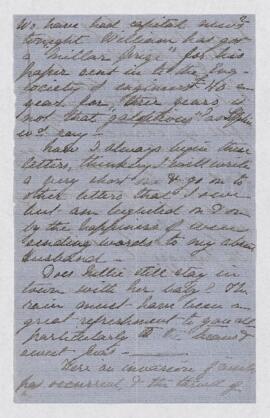 We have had capital news
tonight William has got
a "Millar Prize" for his
paper sent in to the
Society of engineers £40 a
year for three years is
not that
say!
how I always begin these
letters, thinking I will write
a very short one & go on to
other letters that I owe
but am beguiled on & on
by the happiness of even
sending words to my absent
husband -
Does Nellie still stay in
town with her baby? The
rain must have been a
great refreshment to you all
particularly to
sweet pets
Here an invasion of
has occurred & the